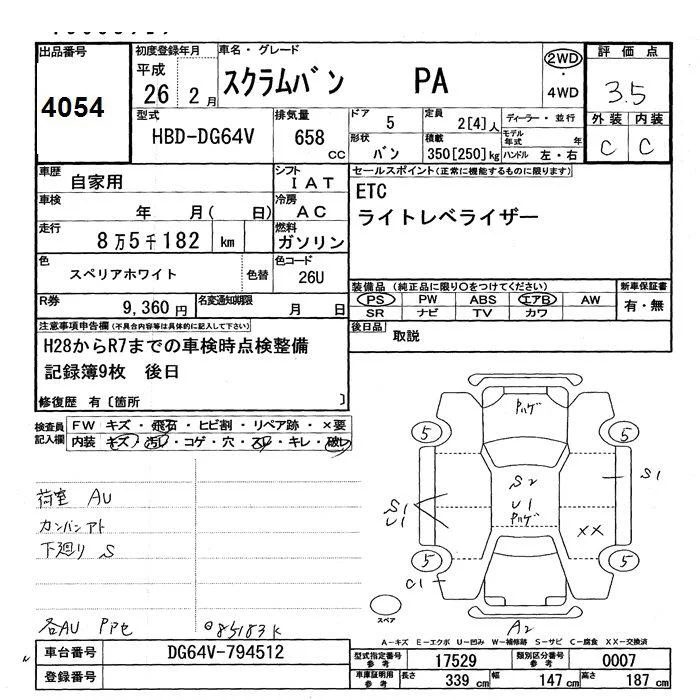 出品番号
4054
初度登録年月
平成
26 2月
車名・グレード
スクラムバン PA
2WD
・
4WD
評価点
3.5
外装 内装
C C
型式
HBD-DG64V
排気量
658
CC
ドア 5
形状 バン
定員 2[4]人
積載 350[250]kg
ディーラー・並行
モデル年式 年
ハンドル 左・右
車歴 自家用
シフト IAT
車検 年 月( 日)
冷房 AC
走行 8万5千182 km
燃料 ガソリン
色 スペリアホワイト
色替
色コード 26U
R券 9,360円
名変通知期限 月 日
セールスポイント(正常に機能するものに限ります)
ETC
ライトレベライザー
装備品 (純正品に限り○をつけてください)
PS PW ABS エアB AW
SR ナビ TV カワ
新車保証書
有・無
後日品 取説
注意事項申告欄(不具合内容等は具体的に記入して下さい)
H28からR7までの車検時点検整備
記録簿9枚 後日
修復歴 有〔箇所 〕
検査員記入欄
FW キズ・飛石・ヒビ割・リペア跡・×要
内装 キズ・汚レ・コゲ・穴・スレ・キレ・破レ
荷室 AU
カンバンアト
下廻り S
各AU PPセ
85183K
Pハゲ
5
5
S2
U1
Pハゲ
S1
S1
U1
XX
5
5
C1
A2
スペア
A-キズ E-エクボ U-凹み W-補修跡 S-サビ C-腐食 XX-交換済
車台番号 DG64V-794512
登録番号
型式指定番号参考 17529
類別区分番号参考 0007
車庫証明用参考 長さ 339 cm 幅 147 cm 高さ 187 cm